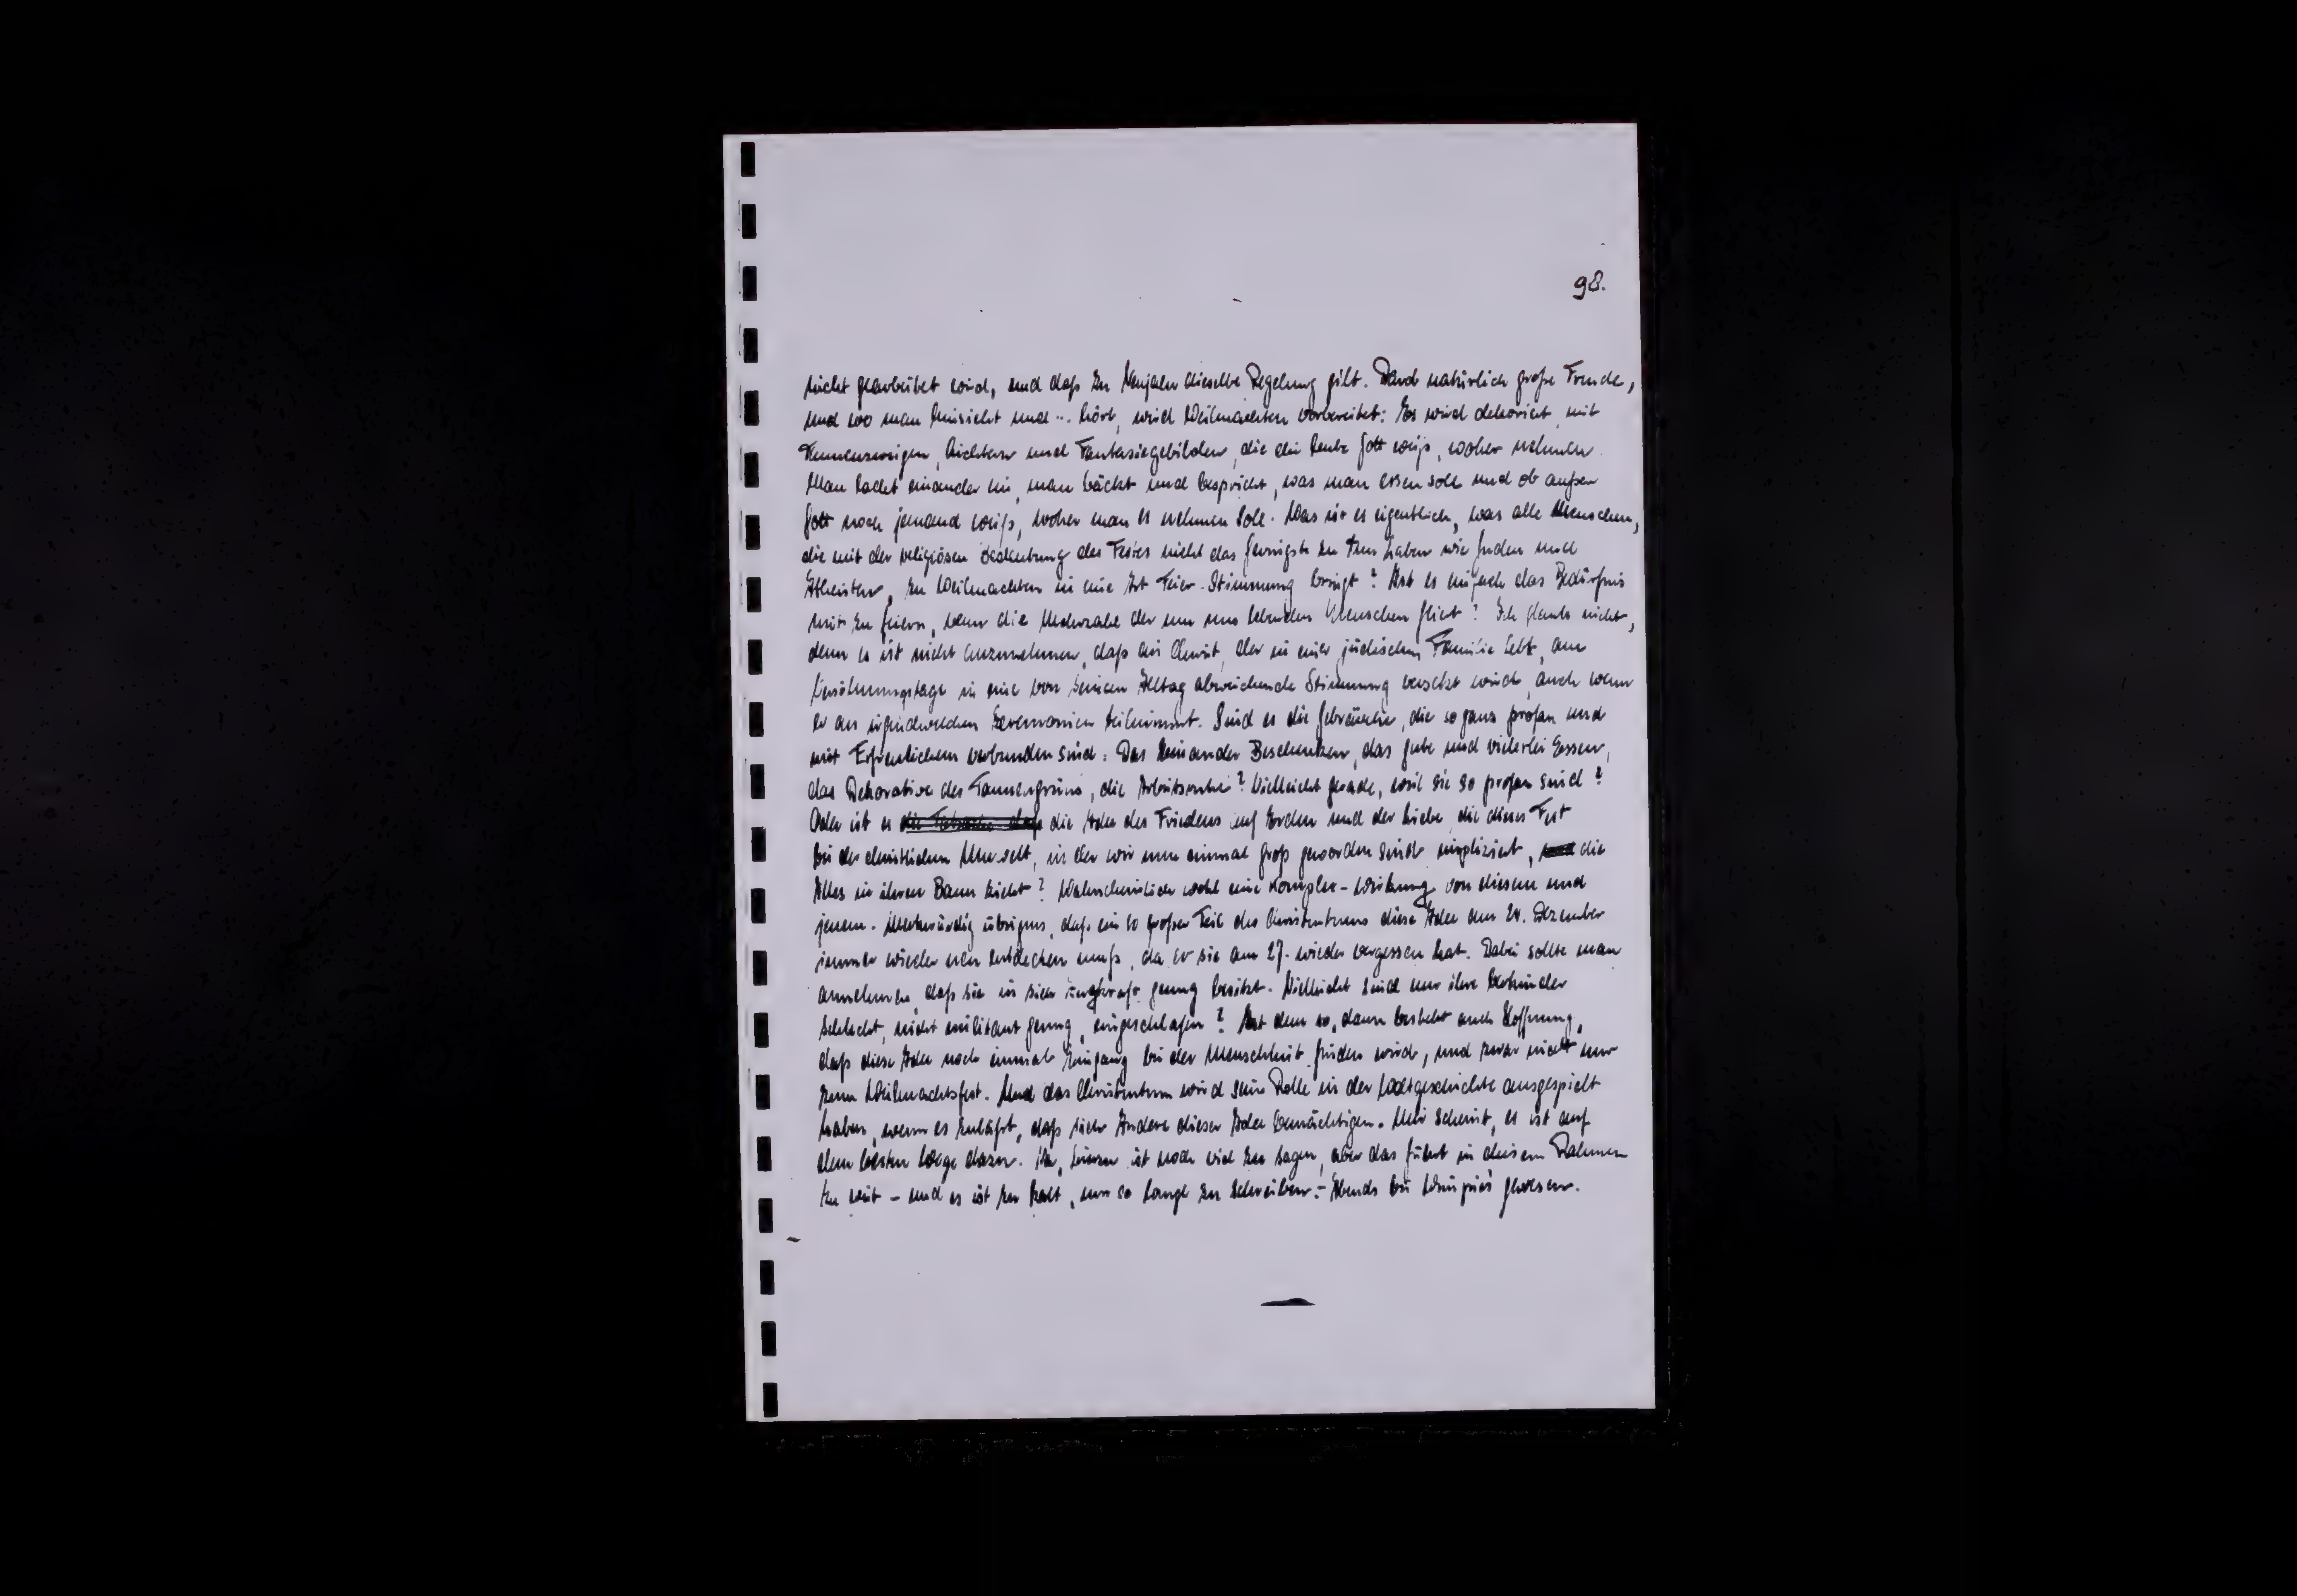 98.
nicht gearbeitet wird, und daß zu Neujahr dieselbe Regelung gilt. Darob natürlich große Freude,
und wo man hinsieht und ... hört, wird Weihnachten vorbereitet: Es wird dekoriert mit
Tannenzweigen, Lichtern und Fantasiegebilden, die die Leute Gott weiß, woher nehmen.
Man ladet einander ein, man bäckt und bespricht, was man essen soll und ob außer
Gott noch jemand weiß, woher man es nehmen soll. Was ist es eigentlich, was alle Menschen,
die mit der religiösen Bedeutung des Festes nicht das Geringste zu tun haben wie Juden und
Atheisten, zu Weihnachten in eine Art Feier-Stimmung bringt? Ist es einfach das Bedürfnis
mit zu feiern, wenn die Mehrzahl der um uns lebenden Menschen feiert? Ich glaube nicht,
denn es ist nicht anzunehmen, daß ein Christ, der in einer jüdischen Familie lebt, am
Versöhnungstage in eine von seinem Alltag abweichende Stimmung versetzt wird, auch wenn
er an irgendwelchen Zeremonien teilnimmt. Sind es die Gebräuche, die so ganz profan und
mit Erfreulichem verbunden sind: Das Einander Beschenken, das gute und vielerlei Essen,
das Dekorative des Tannengrüns, die Arbeitsruhe? Vielleicht gerade, weil sie so profan sind?
Oder ist es die Tatsache daß die Idee des Friedens auf Erden und der Liebe, die dieses Fest
bei der christlichen Umwelt, in der wir nun einmal groß geworden sind impliziert, und die
Alles in ihren Bann zieht? Wahrscheinlich wohl eine Komplex-Wirkung von diesem und
jenem. Merkwürdig übrigens, daß ein so großer Teil des Christentums diese Idee am 24. Dezember
immer wieder neu entdecken muß, da er sie am 27. wieder vergessen hat. Dabei sollte man
annehmen, daß sie in sich genug besitzt. Vielleicht sind nur ihre Verkünder
schlecht, nicht militant genug, eingeschlafen? Ist dem so, dann besteht auch Hoffnung,
daß diese Idee noch einmal Eingang bei der Menschheit finden wird, und zwar nicht nur
zum Weihnachtsfest. Und das Christentum wird seine Rolle in der Weltgeschichte ausgespielt
haben, wenn es zuläßt, daß sich Andere dieser Idee bemächtigen. Mir scheint, es ist auf
dem besten Wege dazu. Ja, hierzu ist noch viel zu sagen, aber das führt in diesem Rahmen
zu weit - und es ist zu kalt, um so lange zu schreiben. - Abends bei gewesen.